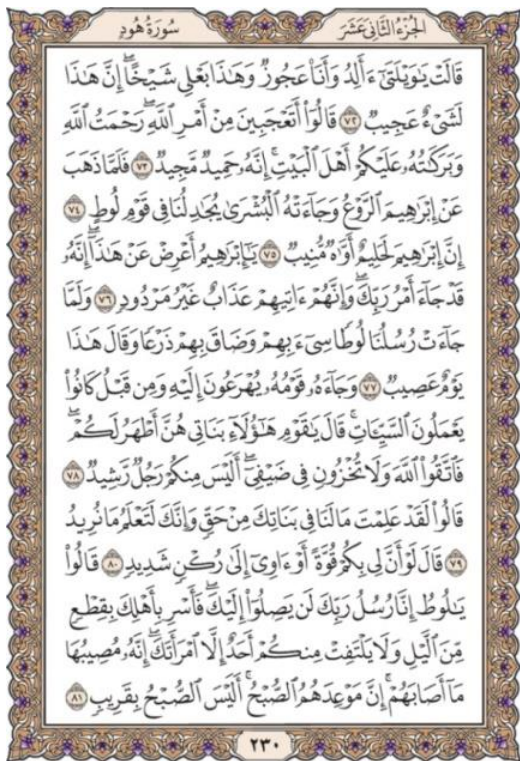 الجُزْءُ الثَّانِي عَشَرَ
سُورَةُ هُودٍ
قَالَتْ يَٰوَيْلَتَىٰٓ ءَأَلِدُ وَأَنَا۠ عَجُوزٌ وَهَٰذَا بَعْلِى شَيْخًا ۖ إِنَّ هَٰذَا
لَشَىْءٌ عَجِيبٌ ٧٢ قَالُوٓا۟ أَتَعْجَبِينَ مِنْ أَمْرِ ٱللَّهِ ۖ رَحْمَتُ ٱللَّهِ
وَبَرَكَٰتُهُۥ عَلَيْكُمْ أَهْلَ ٱلْبَيْتِ ۚ إِنَّهُۥ حَمِيدٌ مَّجِيدٌ ٧٣ فَلَمَّا ذَهَبَ
عَنْ إِبْرَٰهِيمَ ٱلرَّوْعُ وَجَآءَتْهُ ٱلْبُشْرَىٰ يُجَٰدِلُنَا فِى قَوْمِ لُوطٍ ٧٤
إِنَّ إِبْرَٰهِيمَ لَحَلِيمٌ أَوَّٰهٌ مُّنِيبٌ ٧٥ يَٰٓإِبْرَٰهِيمُ أَعْرِضْ عَنْ هَٰذَآ ۖ إِنَّهُۥ
قَدْ جَآءَ أَمْرُ رَبِّكَ ۖ وَإِنَّهُمْ ءَاتِيهِمْ عَذَابٌ غَيْرُ مَرْدُودٍ ٧٦ وَلَمَّا
جَآءَتْ رُسُلُنَا لُوطًا سِىٓءَ بِهِمْ وَضَاقَ بِهِمْ ذَرْعًا وَقَالَ هَٰذَا
يَوْمٌ عَصِيبٌ ٧٧ وَجَآءَهُۥ قَوْمُهُۥ يُهْرَعُونَ إِلَيْهِ وَمِن قَبْلُ كَانُوا۟
يَعْمَلُونَ ٱلسَّيِّـَٔاتِ ۚ قَالَ يَٰقَوْمِ هَٰٓؤُلَآءِ بَنَاتِى هُنَّ أَطْهَرُ لَكُمْ ۖ
فَٱتَّقُوا۟ ٱللَّهَ وَلَا تُخْزُونِ فِى ضَيْفِىٓ ۖ أَلَيْسَ مِنكُمْ رَجُلٌ رَّشِيدٌ ٧٨
قَالُوا۟ لَقَدْ عَلِمْتَ مَا لَنَا فِى بَنَاتِكَ مِنْ حَقٍّ وَإِنَّكَ لَتَعْلَمُ مَا نُرِيدُ
٧٩ قَالَ لَوْ أَنَّ لِى بِكُمْ قُوَّةً أَوْ ءَاوِىٓ إِلَىٰ رُكْنٍ شَدِيدٍ ٨٠ قَالُوا۟
يَٰلُوطُ إِنَّا رُسُلُ رَبِّكَ لَن يَصِلُوٓا۟ إِلَيْكَ ۖ فَأَسْرِ بِأَهْلِكَ بِقِطْعٍ
مِّنَ ٱلَّيْلِ وَلَا يَلْتَفِتْ مِنكُمْ أَحَدٌ إِلَّا ٱمْرَأَتَكَ ۖ إِنَّهُۥ مُصِيبُهَا
مَآ أَصَابَهُمْ ۚ إِنَّ مَوْعِدَهُمُ ٱلصُّبْحُ ۚ أَلَيْسَ ٱلصُّبْحُ بِقَرِيبٍ ٨١
٢٣٠